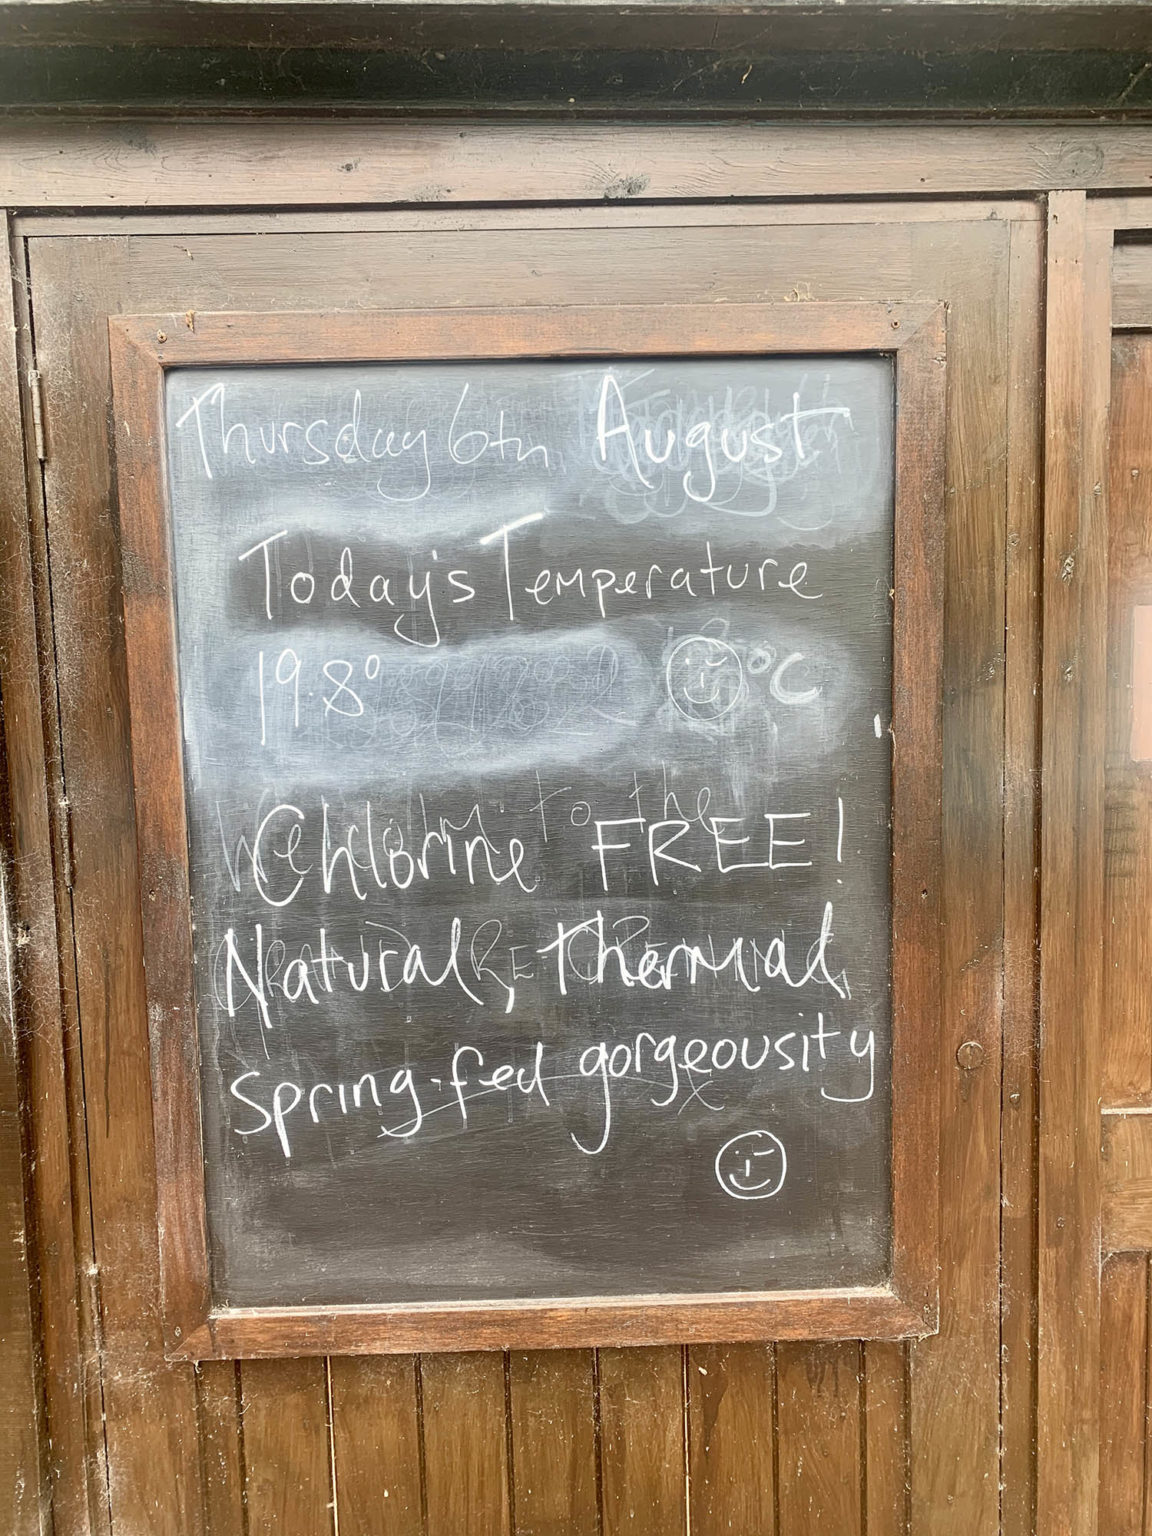 Thursday 6th August
Today's Temperature
19.8° °C
Chlorine FREE!
Natural, thermal,
spring-fed gorgeousity